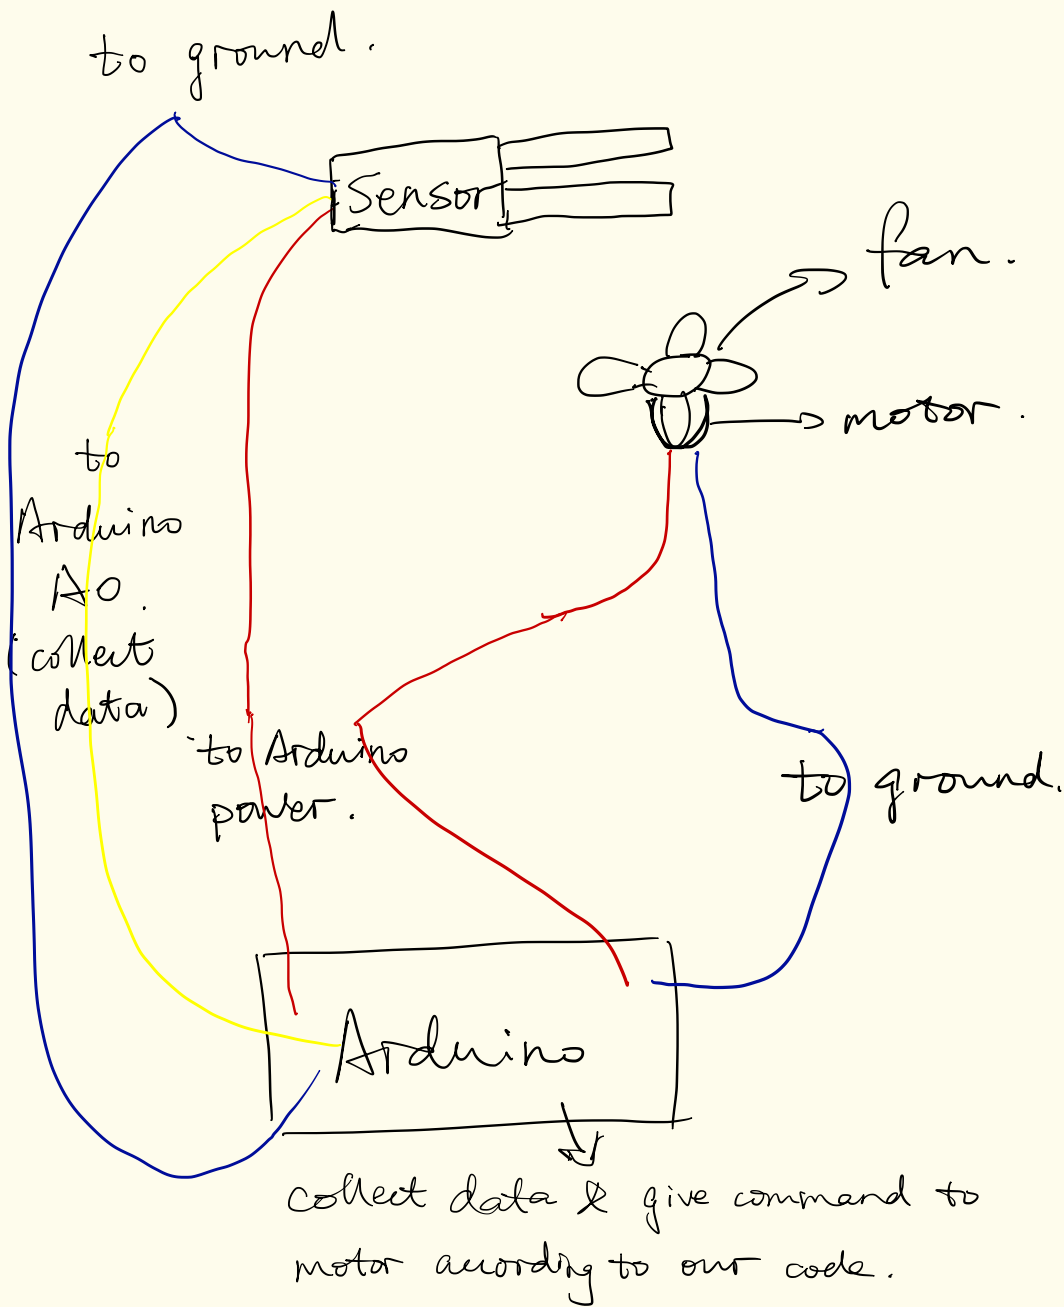 to ground.
Sensor
fan.
motor.
to
Arduino
A0.
(collect
data)
to Arduino
power.
to ground.
Arduino
collect data & give command to
motor acording to our code.